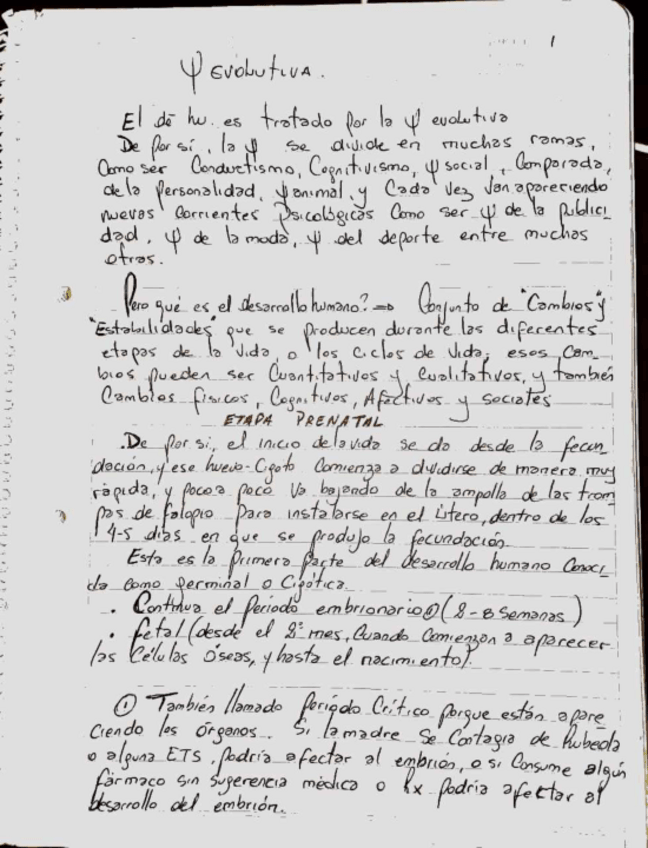 1
Ψ EVOLUTIVA.
El dē hu. es tratado por la Ψ evolutiva
De por sí, la Ψ se divide en muchas ramas,
Como ser Conductismo, Cognitivismo, Ψ social, Comparada,
de la Personalidad, Ψ animal, y Cada vez van apareciendo
nuevas Corrientes Psicológicas Como ser Ψ de la publici_
dad, Ψ de la moda, Ψ del deporte entre muchas
otras.
Pero qué es el desarrollo humano? ⇒ Conjunto de "Cambios" y
"Estabilidades" que se producen durante las diferentes
etapas de la vida, o los Ciclos de Vida; esos Cam_
bios pueden ser Cuantitativos y Cualitativos, y también
Cambios físicos, Cognitivos, Afectivos y sociales
ETAPA PRENATAL
.De por sí, el inicio de la vida se da desde la fecun_
dación, y ese huevo-Cigoto Comienza a dividirse de manera muy
rápida, y poco a poco va bajando de la ampolla de las trom_
pas de falopio para instalarse en el Útero, dentro de los
4-5 días en que se produjo la fecundación.
Esta es la primera parte del desarrollo humano Conoci_
da como germinal o Cigótica.
• Continua el Período embrionario① (2-8 Semanas)
• fetal (desde el 2º mes, Cuando Comienzan a aparecer
las Células Óseas, y hasta el nacimiento).
① También llamado período Crítico porque están apare_
ciendo los órganos. Si la madre se Contagia de Rubeola
o alguna ETS, podría afectar al embrión, o si Consume algún
fármaco sin sugerencia médica o Rx podría afectar al
desarrollo del embrión.